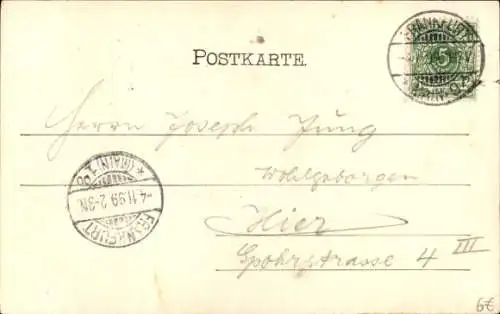 FRANKFURT
5
POSTKARTE.
Herrn Joseph Jung
Wohlgeborgen
Hier
Spohrstrasse 4 III
FRANKFURT
-4.11.99. 2-3N.
* (MAIN) 1 *
6€